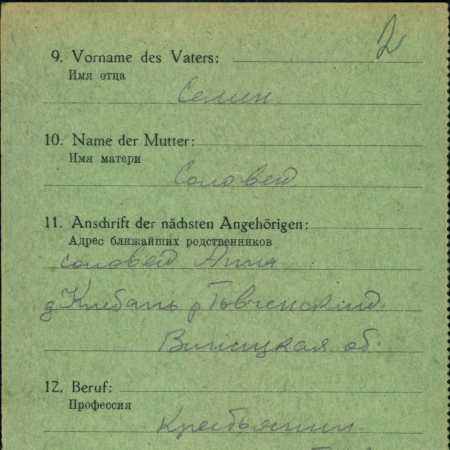 2
9. Vorname des Vaters:
Имя отца
Семен
10. Name der Mutter:
Имя матери
Соловей
11. Anschrift der nächsten Angehörigen:
Адрес ближайших родственников
Соловей Анна
д Клебань р
Виницкая об.
12. Beruf:
Профессия
Крестьянин